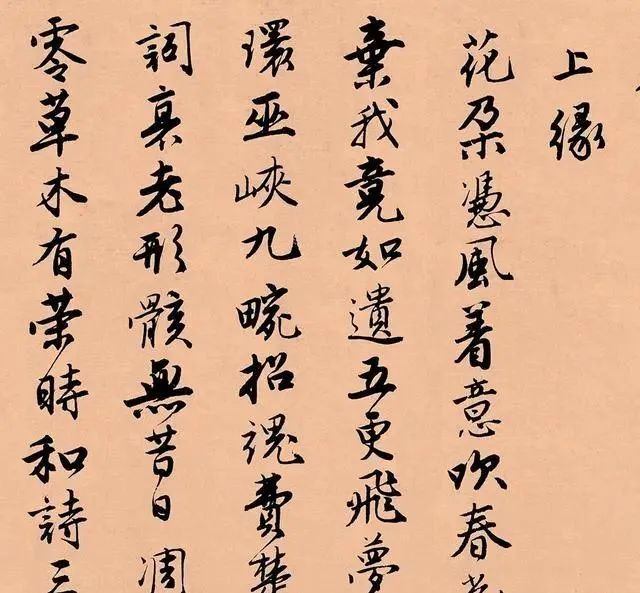 上緣
花朵憑風着意吹春
棄我竟如遺五更飛夢
環巫峽九畹招魂費楚
詞衰老形骸無昔日凋
零草木有榮時和詩三